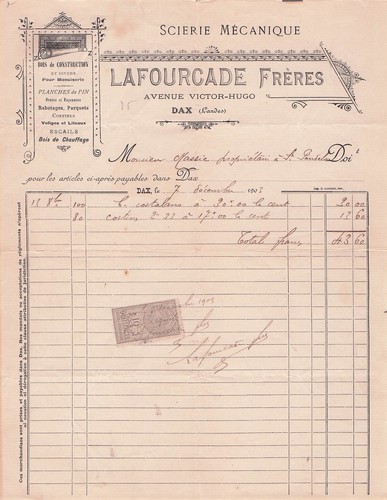 SCIERIE MÉCANIQUE
BOIS DE CONSTRUCTION
ET DIVERS
Pour Menuiserie
PLANCHES de PIN
Brutes et Préparées
Rabotages, Parquets
COINTRES
Voliges et Liteaux
ESCAILS
Bois de Chauffage
LAFOURCADE FRÈRES
AVENUE VICTOR-HUGO
DAX (Landes)
Monsieur Massie propriétaire à St Doit
pour les articles ci-après payables dans Dax
DAX, le 7 décembre 1903
15 8bre 100 à 30=00 le cent 30 00
80 2-22 à 17=00 le cent 13 60
Total francs 43 60
1903
Ces marchandises sont prises et payables dans Dax. Nos mandats ou acceptations de règlements n'opèrent
ni novation ni dérogation à cette clause attributive de juridiction.